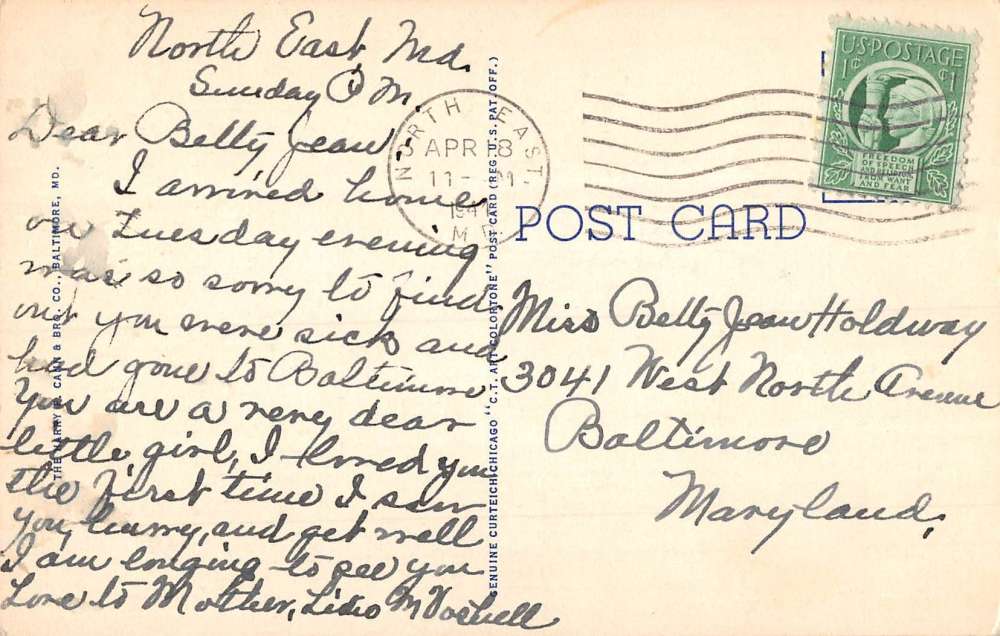 North East Md.
Sunday P M.
Dear Betty Jean
I arrived home
on Tuesday evening
was so sorry to find
out you were sick and
had gone to Baltimore
You are a very dear
little girl, I loved you
the first time I saw
you, hurry, and get well
I am longing to see you
Love to Mother,
THE HARRY P. CANN & BRO. CO., BALTIMORE, MD.
GENUINE CURTEICH-CHICAGO "C.T. ART-COLORTONE" POST CARD (REG. U.S. PAT. OFF.)
NORTH EAST
APR 18
MD.
U.S. POSTAGE
1¢ ¢1
FREEDOM
OF SPEECH
AND RELIGION
FROM WANT
AND FEAR
POST CARD
Miss Betty Jean Holdway
3041 West North Avenue
Baltimore
Maryland.